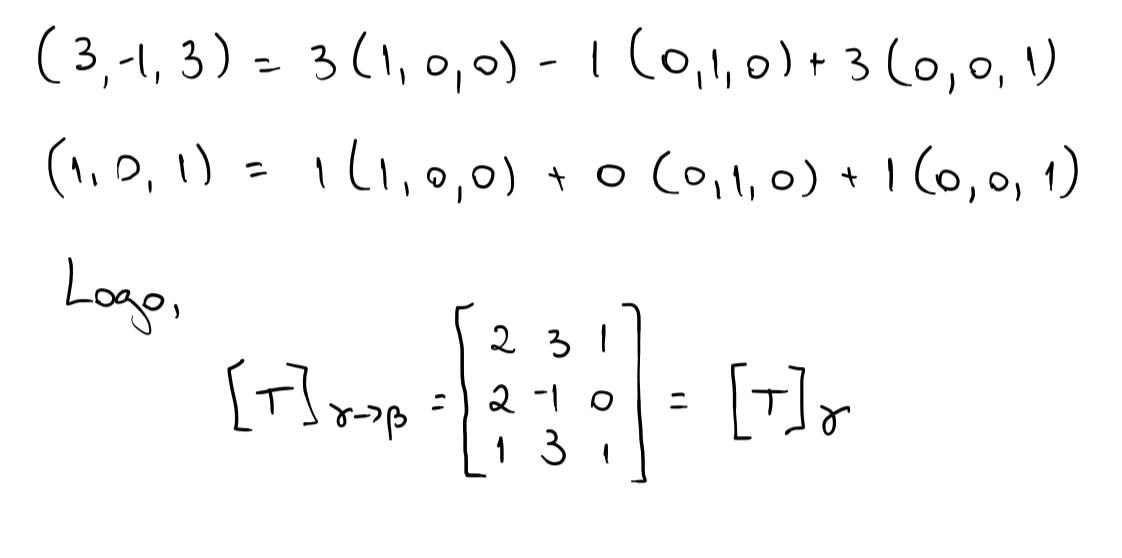 (3,-1,3) = 3(1,0,0) - 1(0,1,0) + 3(0,0,1)
(1,0,1) = 1(1,0,0) + 0(0,1,0) + 1(0,0,1)
Logo,
[T]γ->β = [2 3 1
2 -1 0
1 3 1] = [T]γ